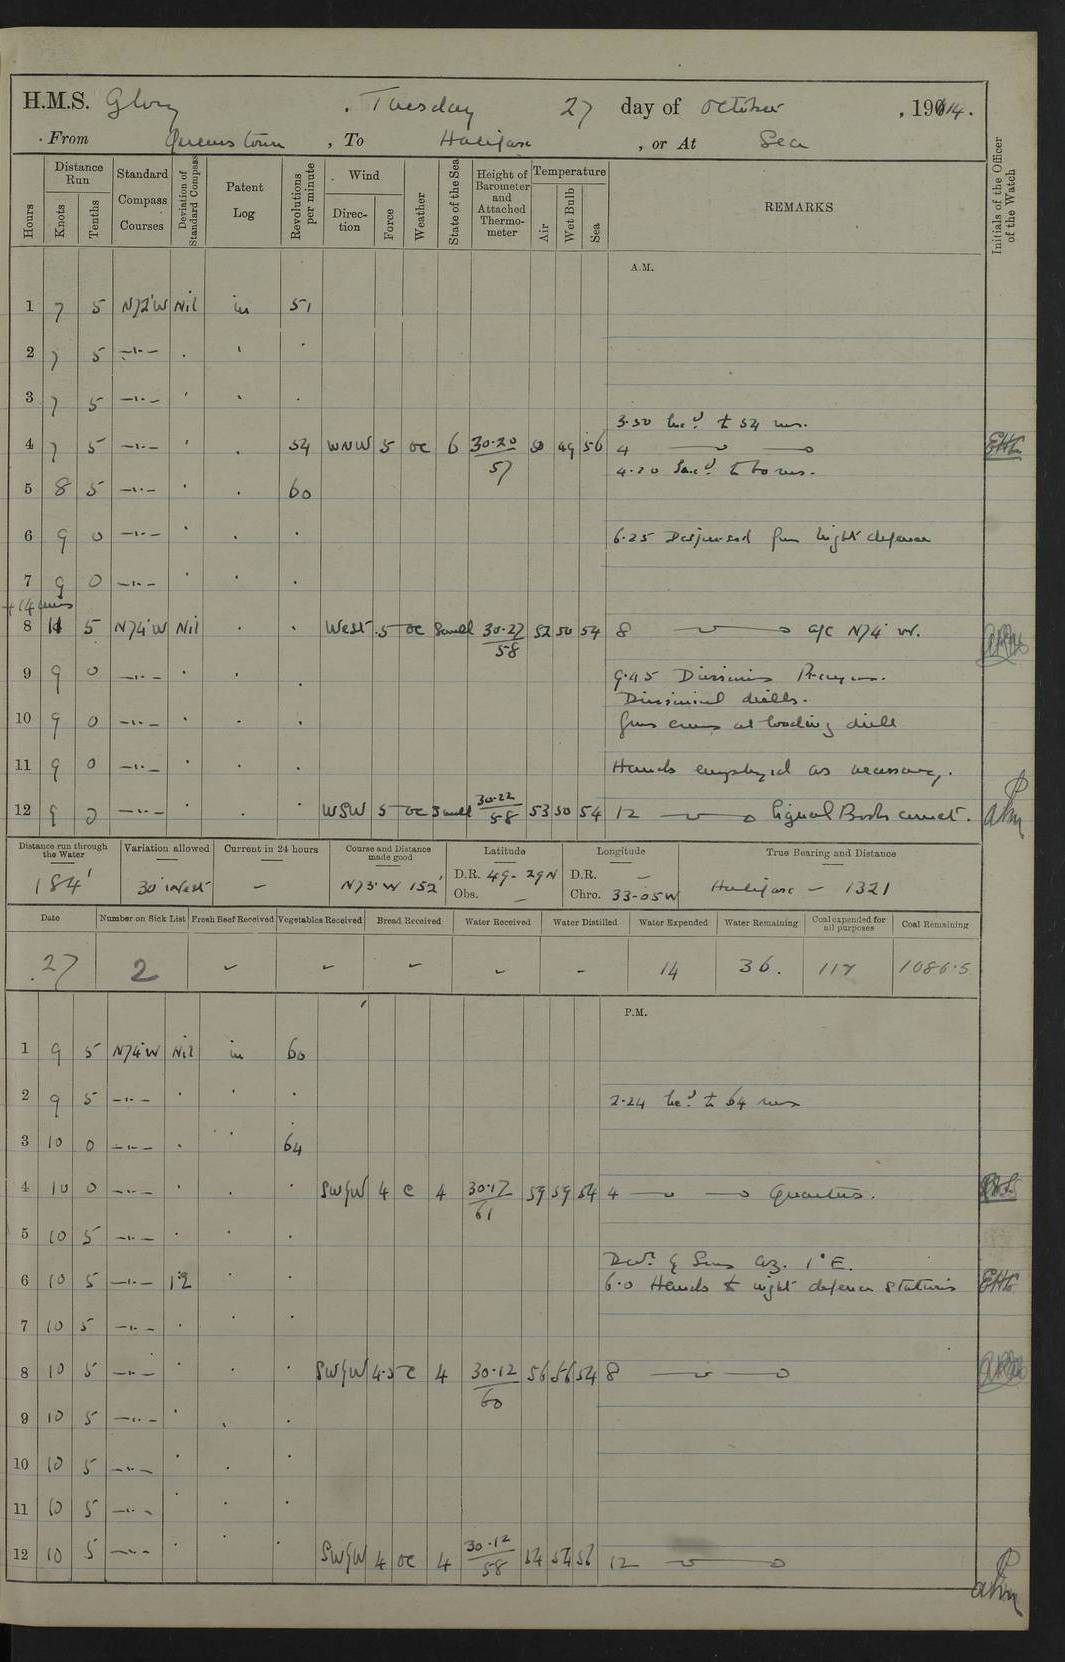 H.M.S. Glory , Tuesday 27 day of October , 1914.
From Queenstown , To Halifax , or At Sea
Hours Distance Run Knots Tenths Standard Compass Courses Deviation of Standard Compass Patent Log Revolutions per minute Wind Direction Force Weather State of the Sea Height of Barometer and Attached Thermometer Temperature Air Wet Bulb Sea REMARKS Initials of the Officer of the Watch
A.M.
1 7 5 N72°W Nil in 51
2 7 5 —"—
3 7 5 —"—
3.50 Inc'd to 54 revs.
4 7 5 —"— 54 WNW 5 oc 6 30.20/57 50 49 56 4 EHL
4.20 Inc'd to 60 revs.
5 8 5 —"— 60
6 9 0 —"— 6.25 Dispersed from night defence
7 9 0 —"—
+14 mins
8 11 5 N74°W Nil West 5 oc Swell 30.27/58 52 50 54 8 a/c N74° W.
9 9 0 —"— 9.45 Divisions Prayers.
Divisional drills.
10 9 0 —"— Guns crews at loading drill
11 9 0 —"— Hands employed as necessary.
12 9 0 —"— WSW 5 oc Swell 30.22/58 53 50 54 12 Signal Books correct.
Distance run through the Water Variation allowed Current in 24 hours Course and Distance made good Latitude Longitude True Bearing and Distance
184' 30° West — N73°W 152' D.R. 49-29N D.R. — Halifax — 1321
Obs. — Chro. 33-05W
Date Number on Sick List Fresh Beef Received Vegetables Received Bread Received Water Received Water Distilled Water Expended Water Remaining Coal expended for all purposes Coal Remaining
27 2 — — — — — 14 36. 117 1086.5
P.M.
1 9 5 N74°W Nil in 60
2 9 5 —"— 2.24 Inc'd to 64 revs
3 10 0 —"— 64
4 10 0 —"— SWyW 4 c 4 30.12/61 59 59 54 4 Quarters.
5 10 5 —"—
Devn. by Suns az. 1°E.
6 10 5 —"— 1°E 6.0 Hands to night defence stations EHL
7 10 5 —"—
8 10 5 —"— SWyW 4.5 c 4 30.12/60 56 56 54 8
9 10 5 —"—
10 10 5 —"—
11 10 5 —"—
12 10 5 —"— SWyW 4 oc 4 30.12/58 54 54 56 12